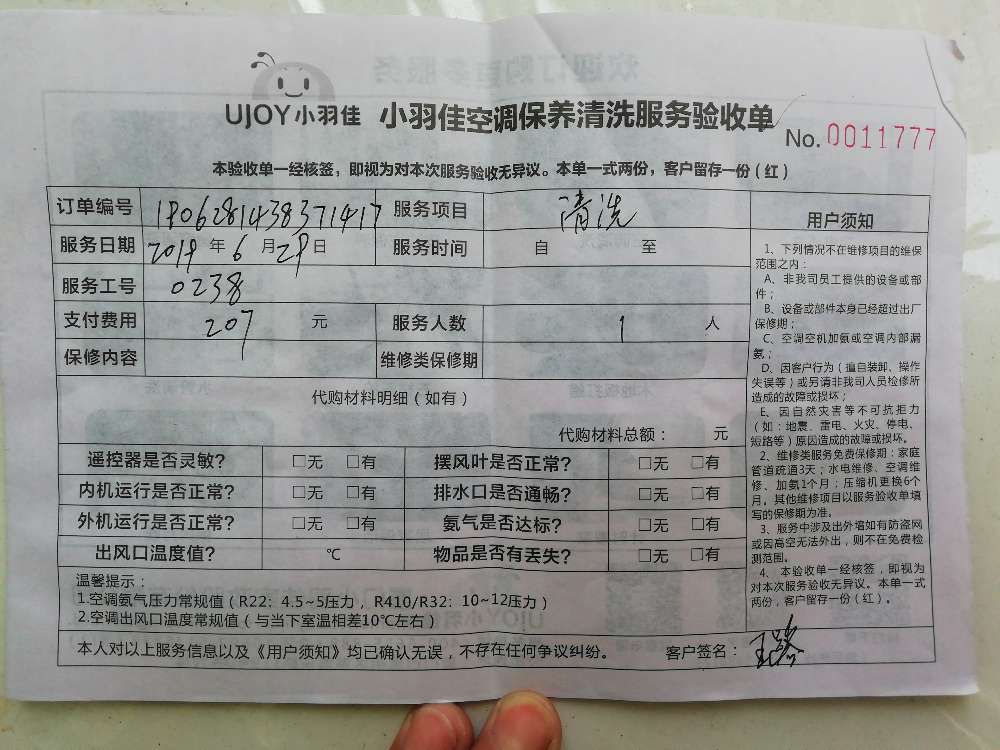 UJOY小羽佳 小羽佳空调保养清洗服务验收单
No. 0011777
本验收单一经核签，即视为对本次服务验收无异议。本单一式两份，客户留存一份（红）
订单编号 服务项目 清洗
服务日期 年 6 月 日 服务时间 自 至
服务工号 0238
支付费用 207 元 服务人数 1 人
保修内容 维修类保修期
代购材料明细（如有）
代购材料总额： 元
遥控器是否灵敏? □无 □有 摆风叶是否正常? □无 □有
内机运行是否正常? □无 □有 排水口是否通畅? □无 □有
外机运行是否正常? □无 □有 氨气是否达标? □无 □有
出风口温度值? ℃ 物品是否有丢失? □无 □有
温馨提示：
1.空调氨气压力常规值（R22：4.5~5压力，R410/R32：10~12压力）
2.空调出风口温度常规值（与当下室温相差10℃左右）
本人对以上服务信息以及《用户须知》均已确认无误，不存在任何争议纠纷。 客户签名：
用户须知
1、下列情况不在维修项目的维保
范围之内：
A、非我司员工提供的设备或部
件；
B、设备或部件本身已经超过出厂
保修期；
C、空调空机加氨或空调内部漏
氨；
D、因客户行为（擅自装卸、操作
失误等）或另请非我司人员检修所
造成的故障或损坏；
E、因自然灾害等不可抗拒力
（如：地震、雷电、火灾、停电、
短路等）原因造成的故障或损坏。
2、维修类服务免费保修期：家庭
管道疏通3天；水电维修、空调维
修、加氨1个月；压缩机更换6个
月。其他维修项目以服务验收单填
写的保修期为准。
3、服务中涉及出外墙如有防盗网
或因高空无法外出，则不在免费检
测范围。
4、本验收单一经核签，即视为
对本次服务验收无异议。本单一式
两份，客户留存一份（红）。